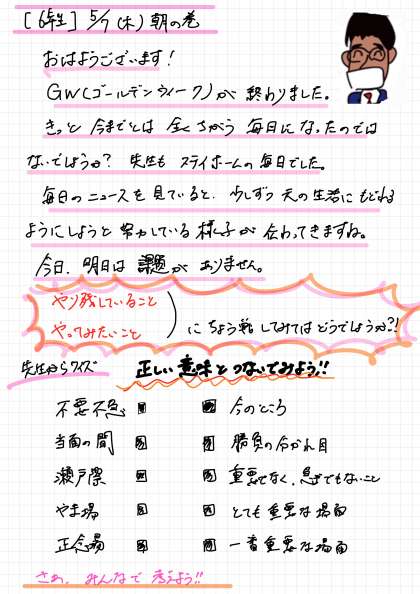 [6年生] 5/7(木)朝の巻
おはようございます!
GW(ゴールデンウィーク)が 終わりました。
きっと 今までとは 全くちがう 毎日になったのでは
ないでしょうか? 先生も ステイホームの毎日でした。
毎日のニュースを見ていると、少しずつ 元の生活に もどれる
ようにしようと 努力している 様子が 伝わってきますね。
今日、明日は 課題が ありません。
やり残していること
やってみたいこと
にちょう戦 してみては どうでしょうか?!
先生からクイズ 正しい意味とつないでみよう!!
不要不急 今のところ
当面の間 勝負の分かれ目
瀬戸際 重要でなく、急ぎでもないこと
やま場 とても 重要な 場面
正念場 一番重要な場面
さあ、みんなで 考えよう!!